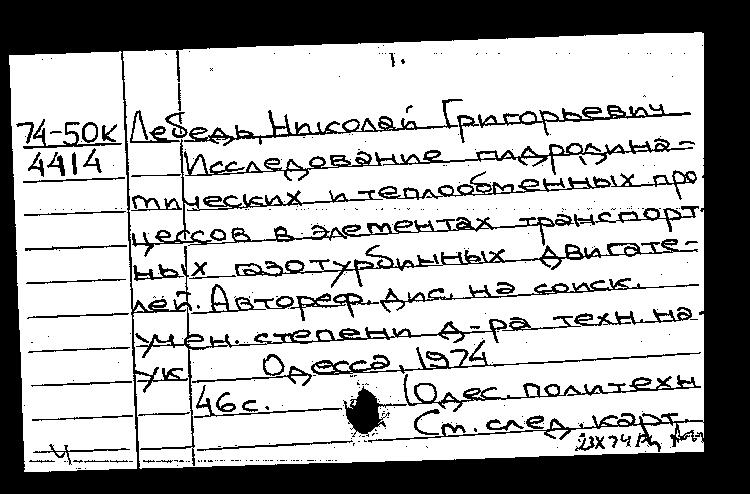 1.
74-50к Лебедь, Николай Григорьевич
4414 Исследование гидродина-
мических и теплообменных про-
цессов в элементах транспорт-
ных газотурбинных двигате-
лей. Автореф. дис. на соиск.
учен. степени д-ра техн. на-
ук Одесса, 1974
46с. (Одес. политехн
Ст. след. карт.
23X74
Ч